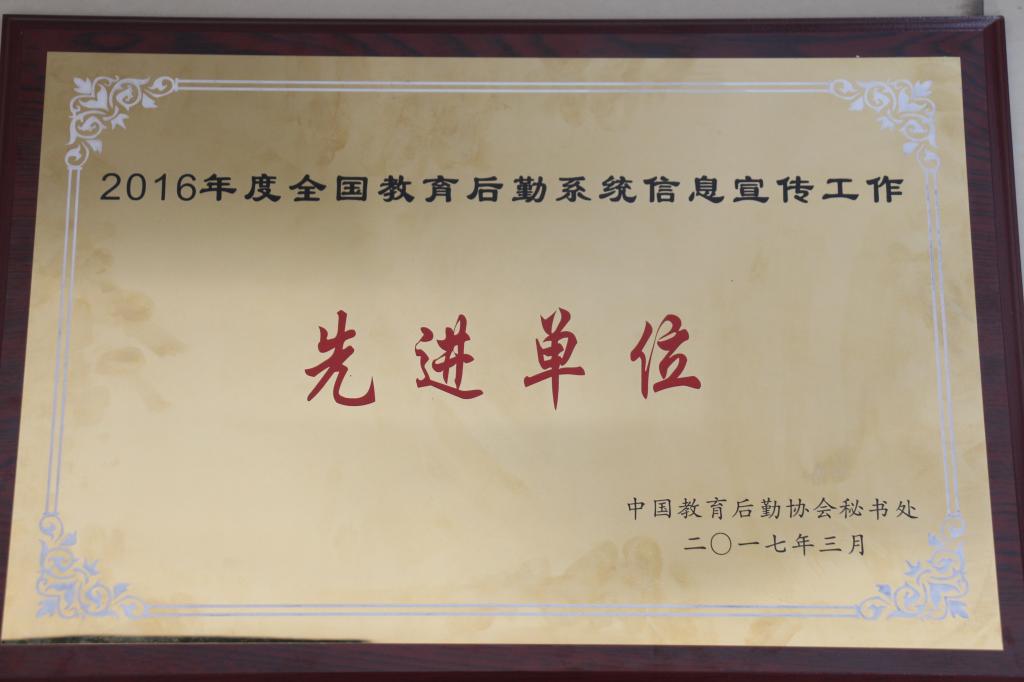 2016年度全国教育后勤系统信息宣传工作
先进单位
中国教育后勤协会秘书处
二〇一七年三月